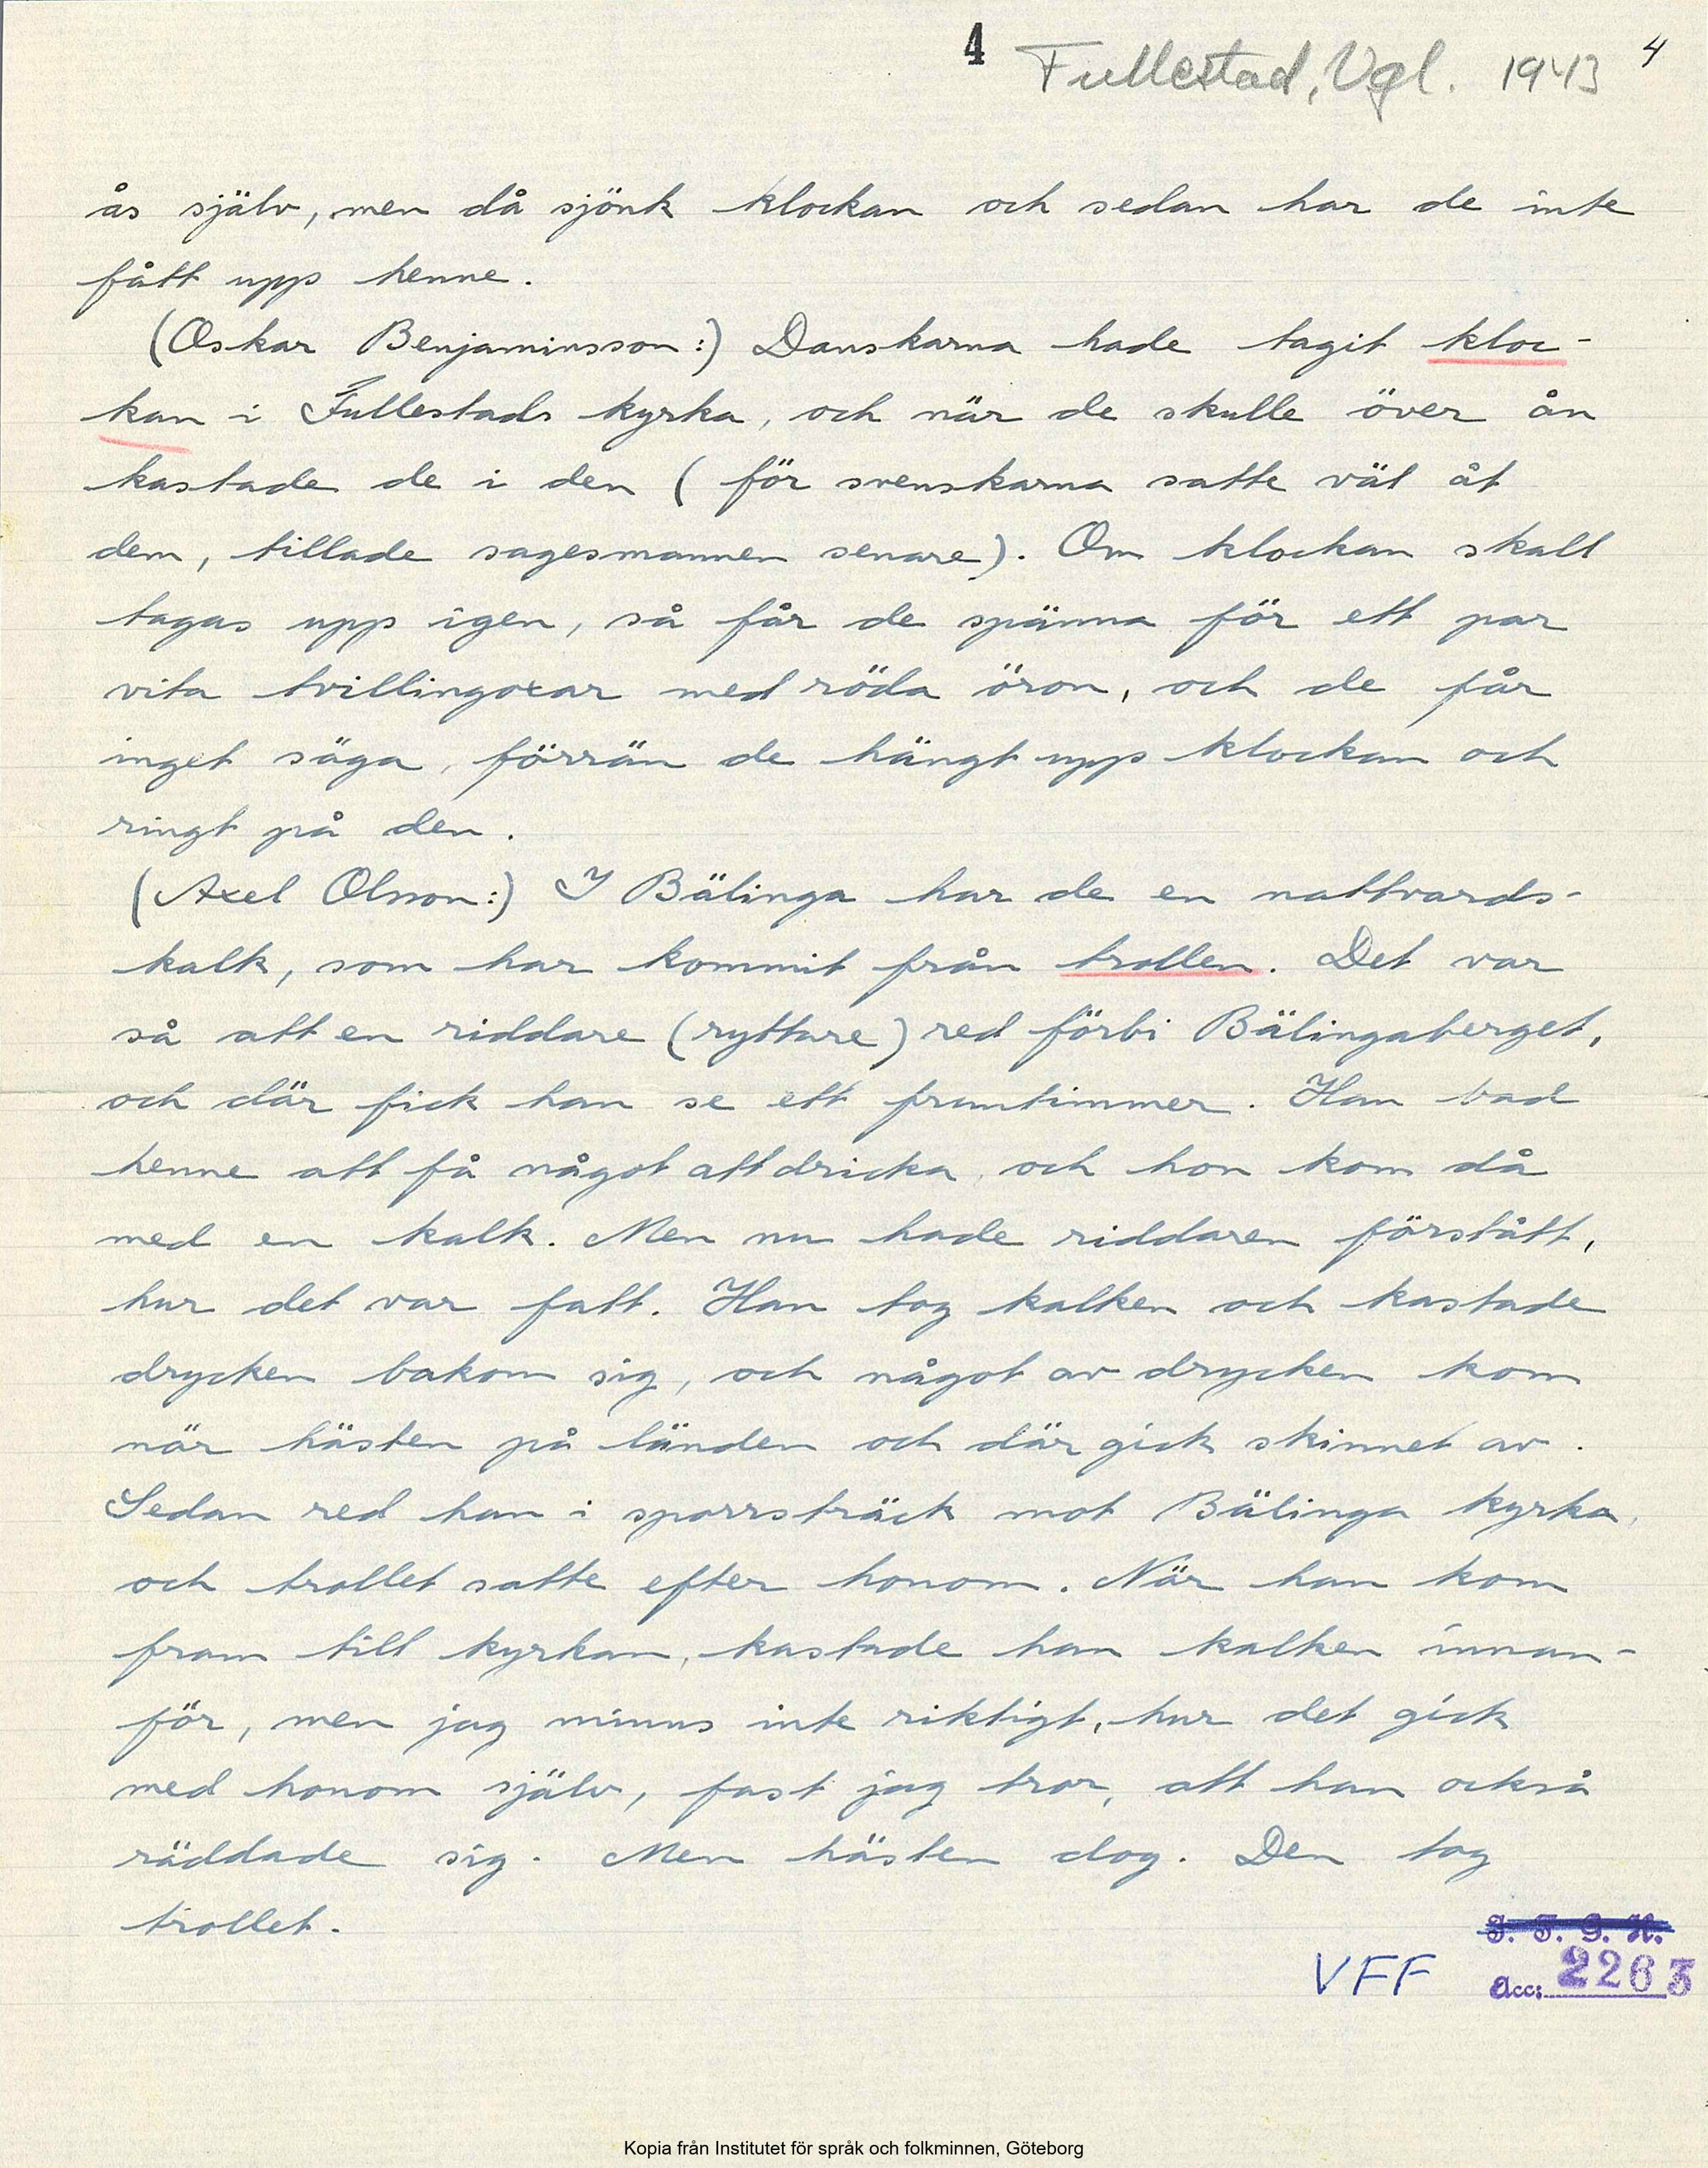 4 Fullestad, Vgl. 1943 4
ås själv, men då sjönk klockan och sedan har de inte
fått upp henne.
(Oskar Benjaminsson:) Danskarna hade tagit kloc-
kan i Fullestads kyrka, och när de skulle över ån
kastade de i den (för svenskarna satte väl åt
dem, tillade sagesmannen senare). Om klockan skall
tagas upp igen, så får de spänna för ett par
vita tvillingoxar med röda öron, och de får
inget säga, förrän de hängt upp klockan och
ringt på den.
(Axel Olsson:) I Bälinga har de en nattvards-
kalk, som har kommit från trollen. Det var
så att en riddare (ryttare) red förbi Bälingaberget,
och där fick han se ett fruntimmer. Han bad
henne att få något att dricka, och hon kom då
med en kalk. Men nu hade riddaren förstått,
hur det var fatt. Han tog kalken och kastade
drycken bakom sig, och något av drycken kom
när hästen på länden och där gick skinnet av.
Sedan red han i sporrsträck mot Bälinga kyrka,
och trollet satte efter honom. När han kom
fram till kyrkan, kastade han kalken innan-
för, men jag minns inte riktigt, hur det gick
med honom själv, fast jag tror, att han också
räddade sig. Men hästen dog. Den tog
trollet.
I. F. G. H.
VFF Acc: 2263
Kopia från Institutet för språk och folkminnen, Göteborg